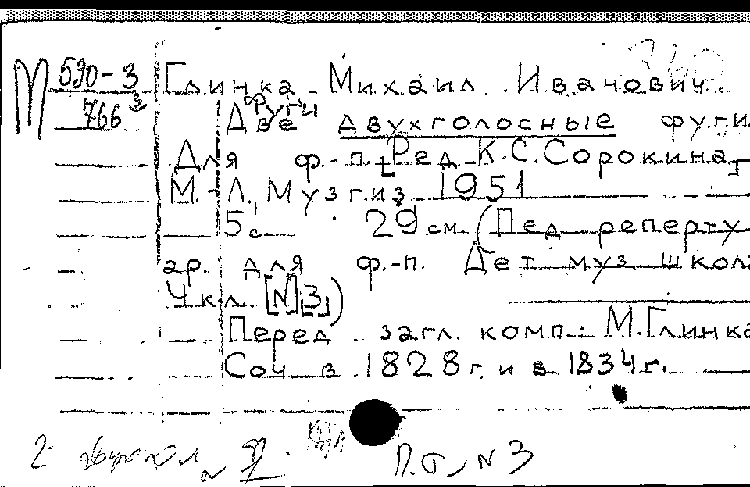 М 590-3
766³
Глинка Михаил Иванович
Две двухголосные фуги
Для ф.-п. [Ред К.С.Сорокина]
М.-Л., Музгиз 1951
5с. 29 см. (Пед реперту
ар. для ф.-п. Дет. муз школ
4 кл. [№ 3])
Перед загл. комп.: М.Глинка
Соч в 1828 г. и в 1834 г.
П.б. № 3